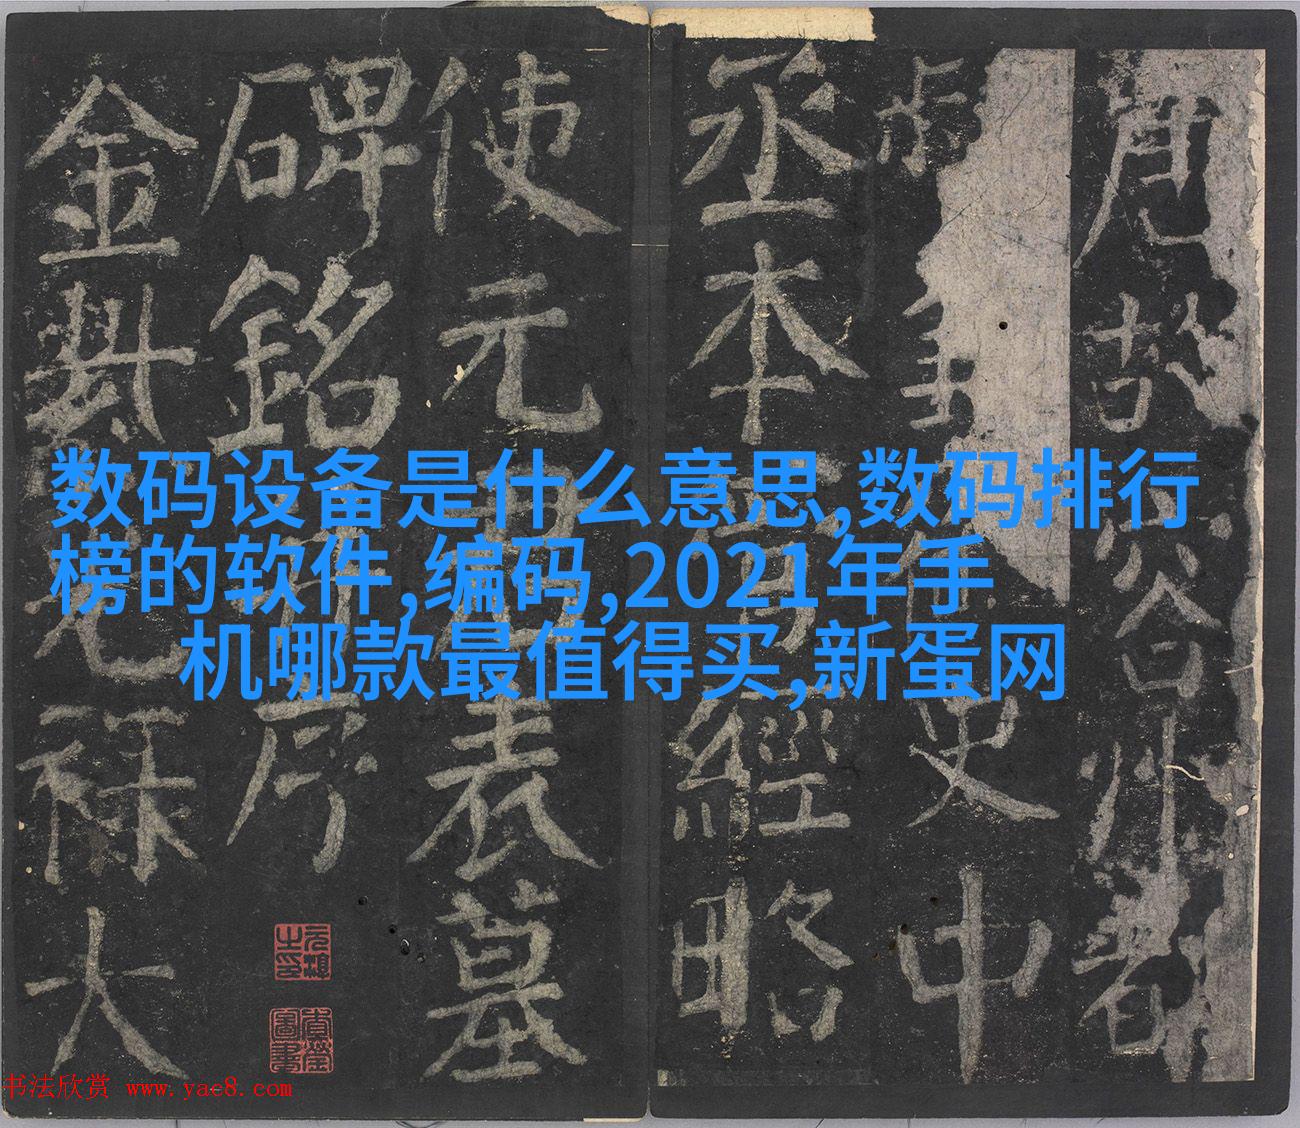 数码设备是什么意思,数码排行
榜的软件,编码,2021年手
机哪款最值得买,新蛋网
唐故容州都
史中
丞本經略
使元君表墓
碑銘序
金紫光祿大
书法欣赏 www.yac8.com